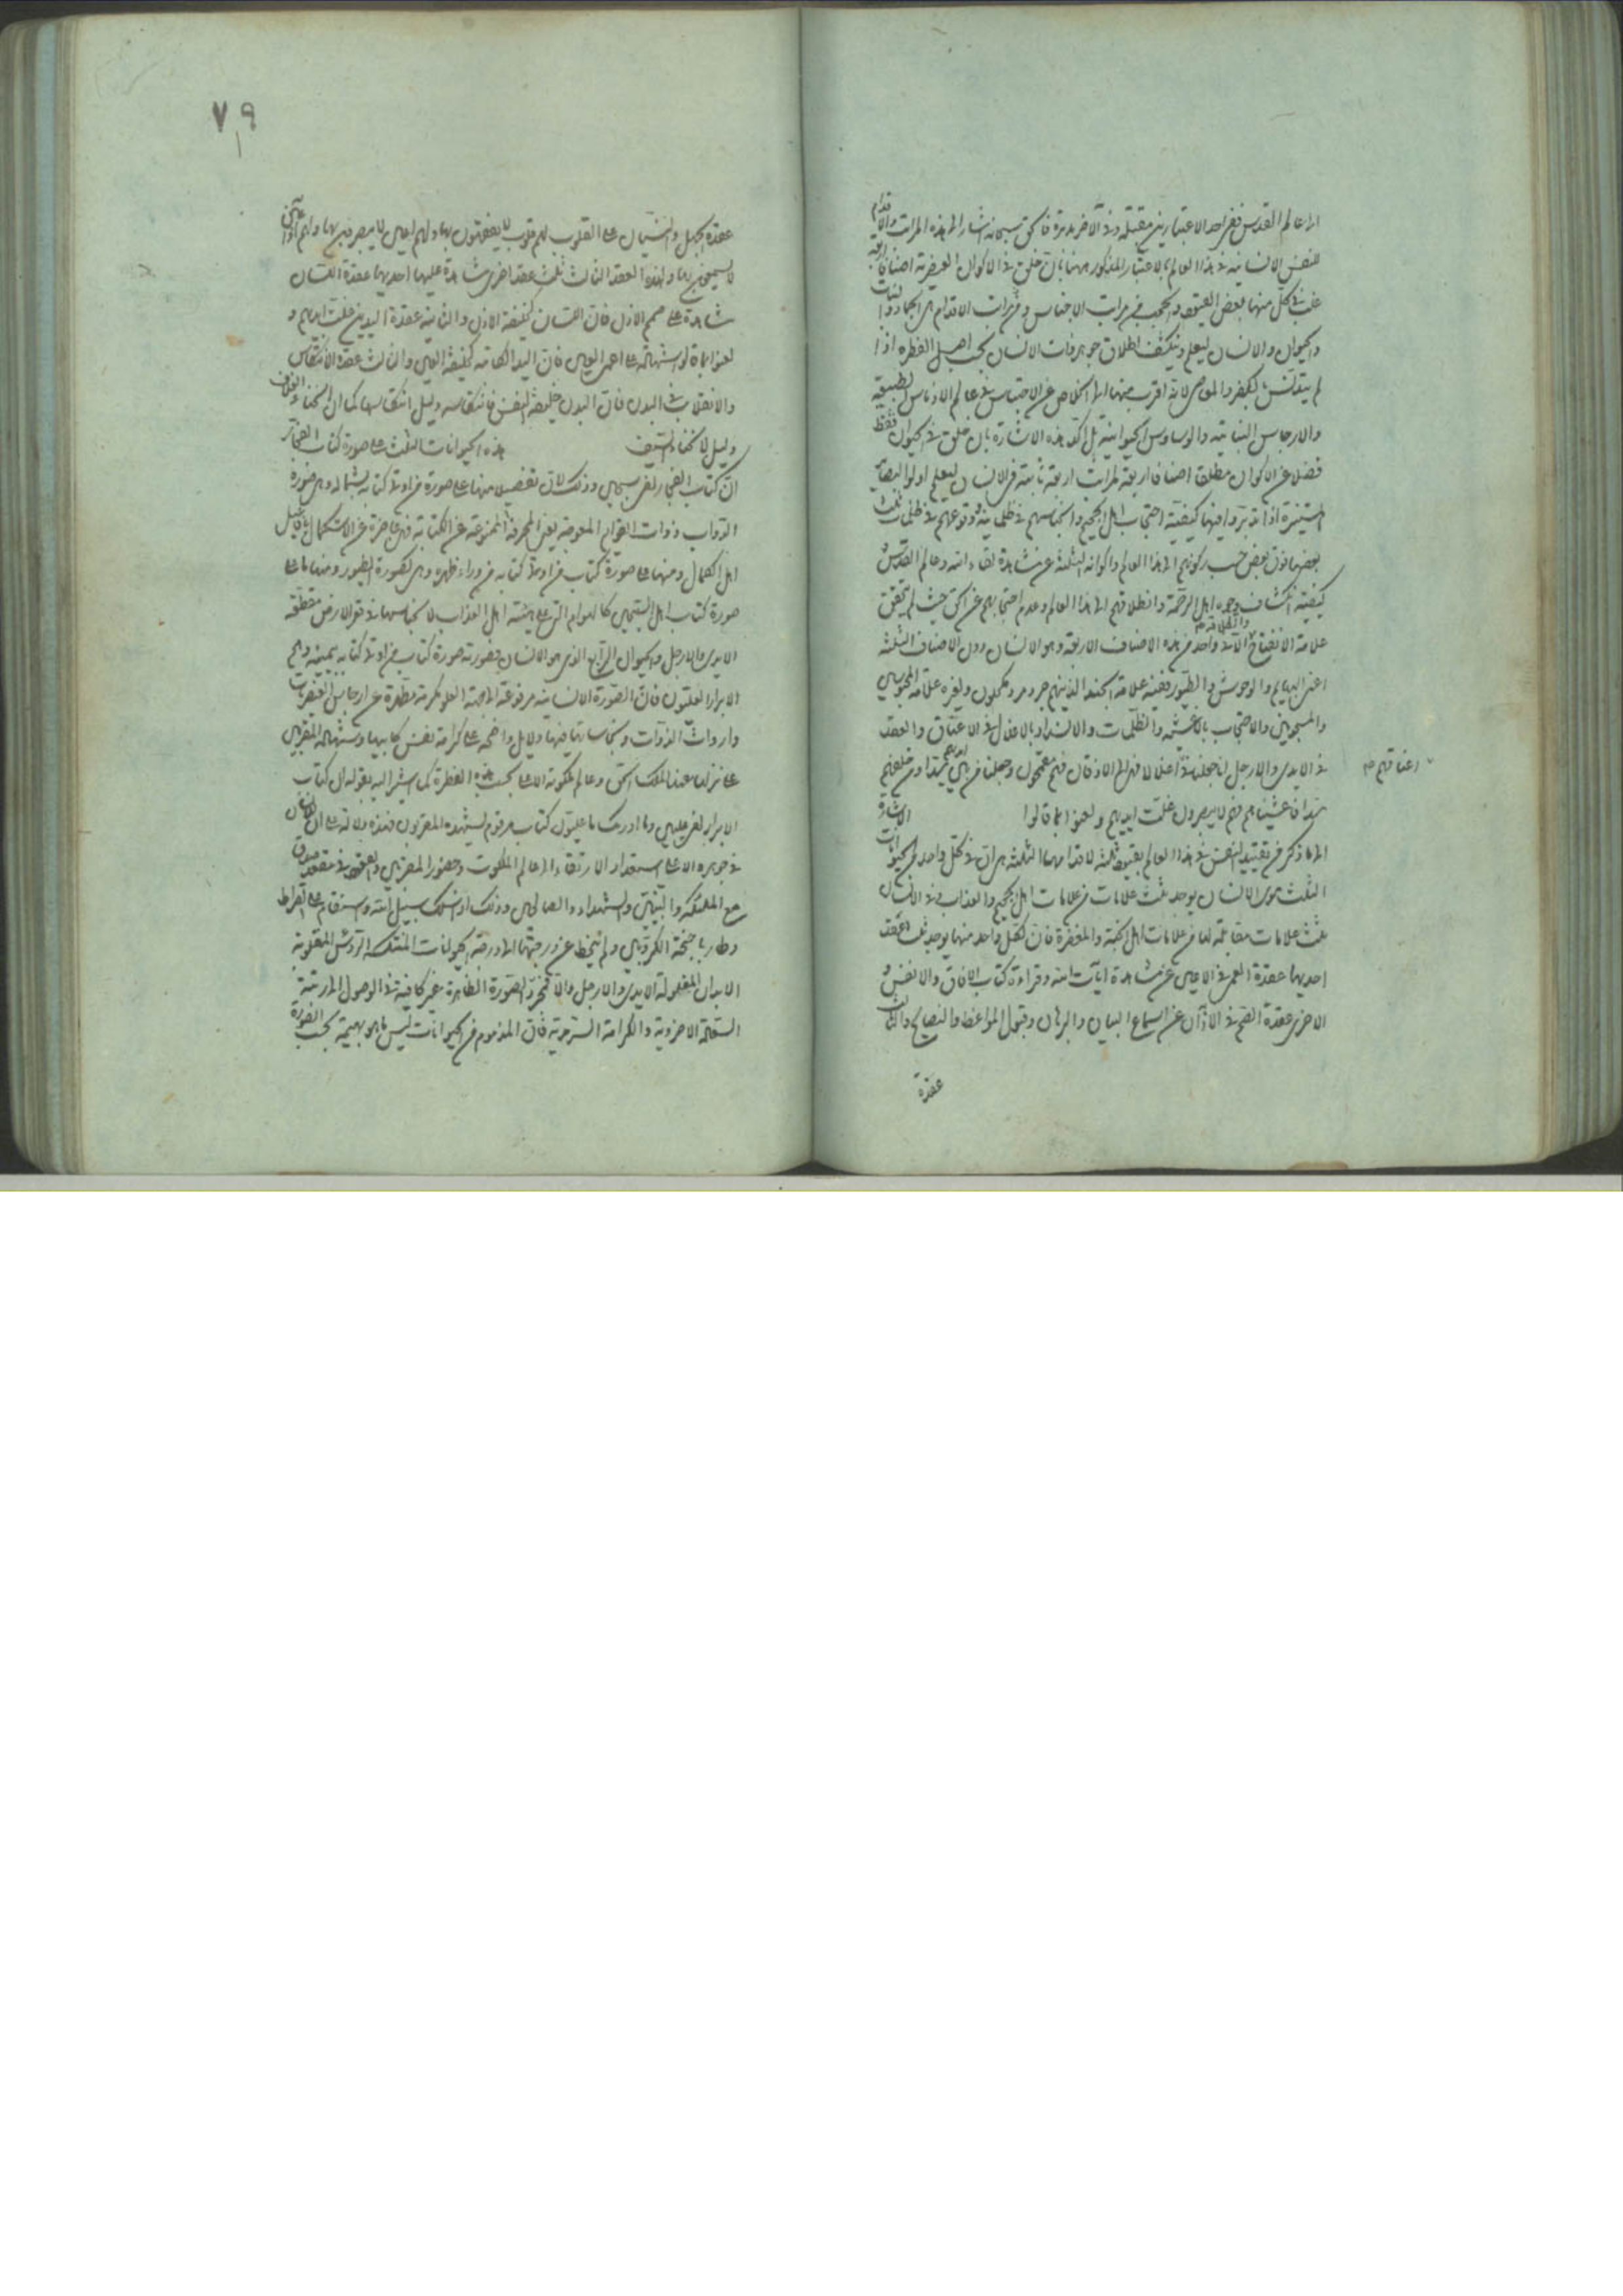 الى عالم القدس ففى احد الاعتبارين مقبلة وفى الآخر مدبرة فالحق سبحانه اشار الى هذه المراتب والاقدام
للنفس الانسانية فى هذا العالم بالاعتبار المذكور مهنا بان خلق فى الاكوان العنصرية اصنافا اربعة
فى كل منها بعض القيود والحجب فى مراتب الاجناس وفى مراتب الاقدام هى الجماد والنبات
والحيوان والانسان ليعلم وينكشف اطلاق جوهر ذات الانسان بحسب اصل الفطرة اذا
لم يتدنس بالكفر والمعاصى لانه اقرب منها الى الخلاص عن الاحتباس فى عالم الادناس الطبيعية
والارجاس النباتية والوساوس الحيوانية بل اكد هذه الاشارة بان خلق فى الحيوان فقط
فضلا عن الاكوان مطلقا اصنافا اربعة لمراتب اربعة ثابتة فى الانسان ليعلم اولوا البصائر
المستنيرة اذا تدبروا فيها كيفية احتجاب اهل الجحيم وانحباسهم فى ظلماتهم ووقوعهم فى ظلمات ثلث
بعضها فوق بعض حسب ركونهم الى هذا العالم واكوانه الثلثة عن مشاهدة لقاء الله وعالم القدس و
كيفية انكشاف وجوه اهل الرحمة وانطلاقهم الى هذا العالم وعدم احتجابهم عن الحق حيث لم يتحقق
علامة الانفتاح والطلاقة الا فى واحد من هذه الاصناف الاربعة وهو الانسان دون الاصناف الثلثة
اعنى البهايم والوحوش والطيور ففيه علامة الجنة الذينهم جرد مرد مكحلون وفى غيره علامة المحبوسين
والمسجونين والاحتجاب بالاغشية والظلمات والانسداد بالاغلال فى الاعناق والعقد
فى الايدى والارجل انا جعلنا فى اعناقهم اغلالا فهى الى الاذقان فهم مقمحون وجعلنا من بين ايديهم سدا ومن خلفهم
سدا فاغشيناهم فهم لا يبصرون غلت ايديهم ولعنوا بما قالوا الاشارة
الى ما ذكر من تقييد النفس فى هذا العالم بقيود ثلثة لاقدامها الثلثة هى ان فى كل واحد من الحيوانات
الثلث سوى الانسان يوجد ثلث علامات من علامات اهل الجحيم والعذاب وفى الانسان
ثلث علامات مقابلة لها من علامات اهل الجنة والمغفرة فان لكل واحد منها يوجد ثلث العقد
احديها عقدة العمى فى الاعين عن مشاهدة آيات الله وقراءة كتاب الافاق والانفس و
الاخرى عقدة الصم فى الآذان عن استماع البيان والبرهان وقبول المواعظ والنصايح والثالث
عقدة
٧٩
عقدة الجهل والنسيان على القلوب لهم قلوب لا يفقهون بها ولهم اعين لا يبصرون بها ولهم آذان
لا يسمعون بها ولهذه العقد الثلث ثلث عقد اخرى شاهدة عليها احديها عقدة اللسان
شاهدة على صمم الاذن فان اللسان كخليفة الاذن والثانية عقدة اليدين غلت ايديهم و
لعنوا بما قالوا شهادة على اعمى العين فان اليد الكاتبة كخليفة العين والثالث عقدة الانتكاس
والانقلاب فى البدن فان البدن خليفة النفس فانتكاسه دليل انتكاسها كما ان انحناء الغلاف
دليل لانحناء السيف هذه الحيوانات الثلث على صورة كتاب الفجار
ان كتاب الفجار لفى سجين وذلك لان تفصيل منها على صورة من اوتى كتابه بشماله وهى صورة
الدواب ذوات القوائم المعوجة يعنى المحرفة الممنوعة عن الكتابة فهى عاجزة عن الاستكمال بافاعيل
اهل الكمال ومنها على صورة كتاب من اوتى كتابه من وراء ظهره وهى كصورة الطيور ومنها ما على
صورة كتاب اهل السجين كالهوام التى على هيئة اهل العذاب لانحباسها فى قعر الارض مقطعة
الايدى والارجل والحيوان الرابع الذى هو الانسان فصورته صورة كتاب من اوتى كتابه بيمينه وهم
الابرار العليون فان الصورة الانسانية مرفوعة الى جهة العلو مكرمة مطهرة عن ارجاس العنصريات
وارواث الدواب ونجاساتها فيها دلايل واضحة على كرامة نفس كاتبها وشهادة المقربين
على نزلها عند الملك الحق وعالم ملكوته الاعلى بحسب هذه الفطرة كما يشير اليه بقوله ان كتاب
الابرار لفى عليين وما ادريك ما عليون كتاب مرقوم يشهده المقربون فهذه دلالة على ان للانسان
فى جوهره الاعلى استعداد الارتقاء الى عالم الملكوت وحضور المقربين والعروج فى مقعد صدق
مع الملئكة والنبيين والشهداء والصالحين وذلك اذا سلك سبيل الله واستقام على الصراط
وطار باجنحة الكروبين ولم ينحط عن درجتها الى درجة الحيوانات المنتكسة الرؤس المقلوبة
الابدان المغلولة الايدى والارجل والا فمجرد الصورة الظاهرة غير كافية فى الوصول الى رتبة
السعادة الاخروية والكرامة السرمدية فان المذموم من الحيوانات ليس ما هو بهيمة بحسب الصورة